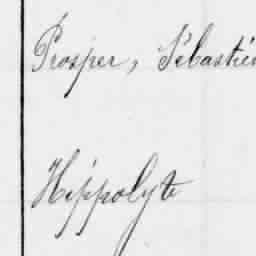 Prosper, Sébastien
Hippolyte